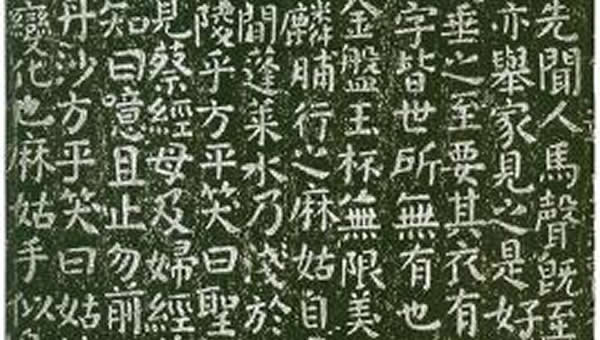 先聞人馬聲既至
亦舉家見之是好
垂之至要其衣有
字皆世所無有也
金盤玉杯無限美
麟脯行之麻姑自
間蓬萊水乃淺於
陵乎方平笑曰聖
見蔡經母及婦經
知曰噫且止勿前
丹沙方乎笑曰姑
變化也麻姑手似